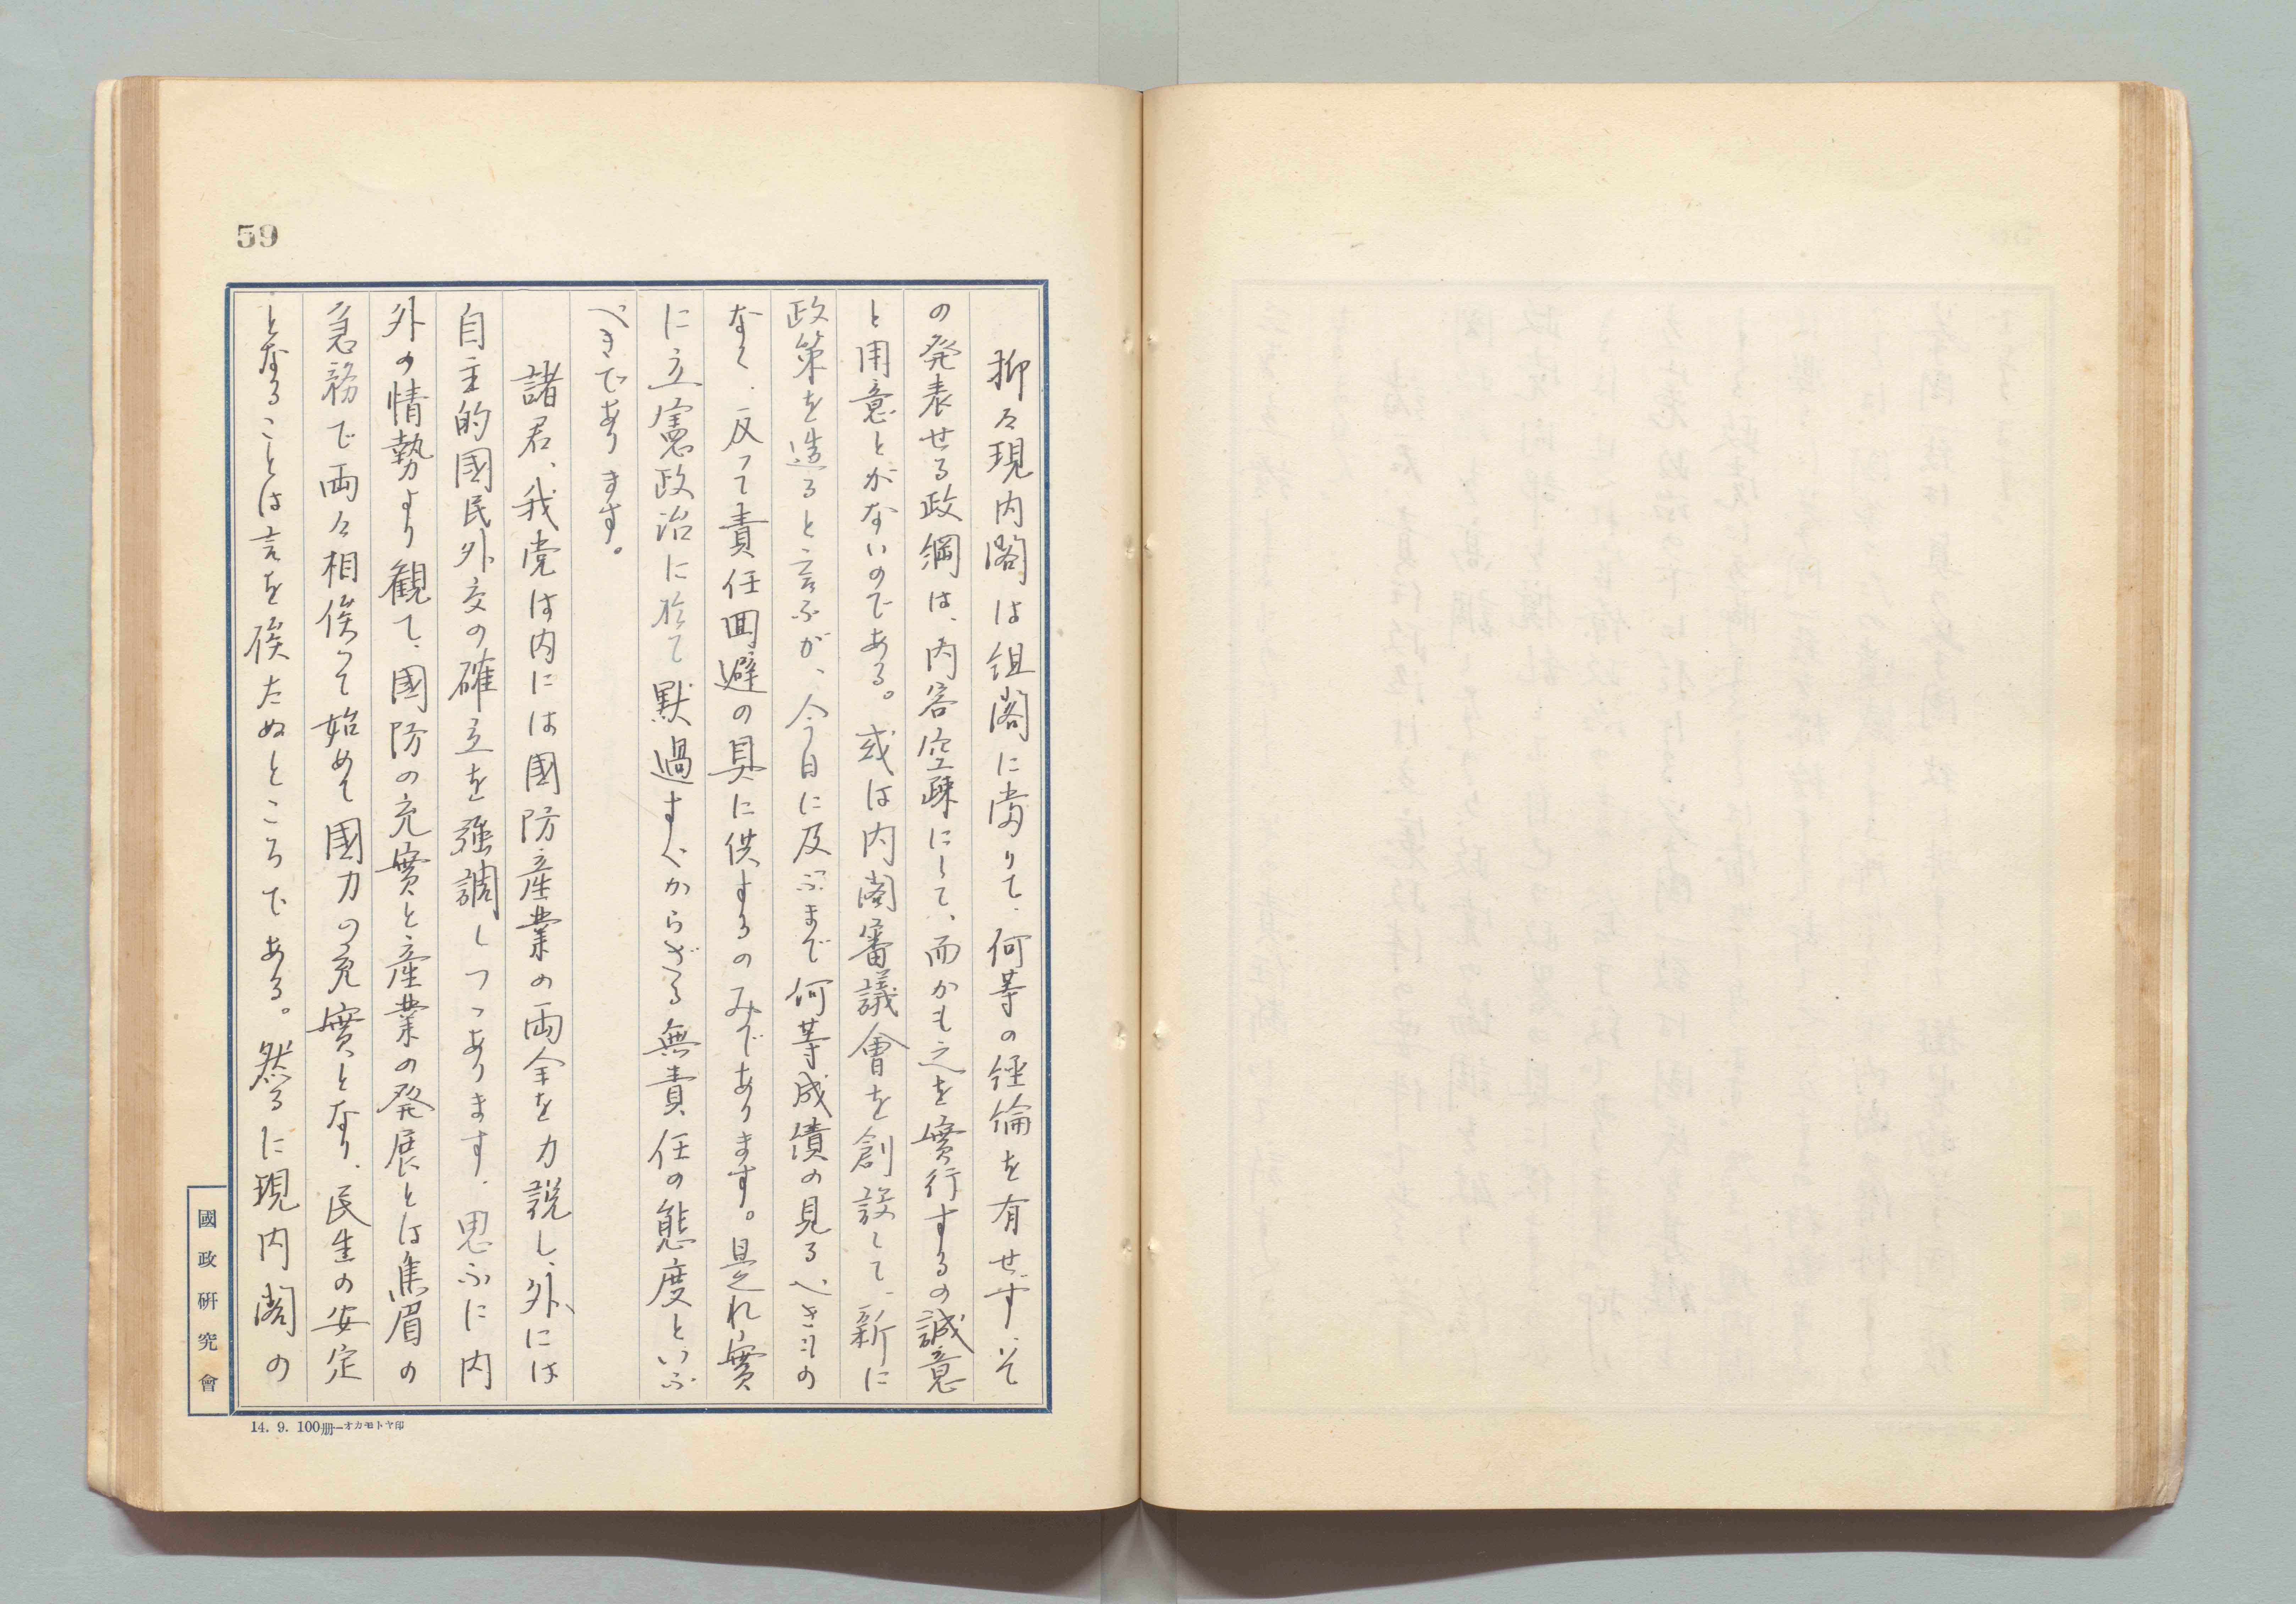 59
抑々現内閣は組閣に當りて、何等の経倫を有せず、そ
の発表せる政綱は、内容空疎にして、而かも之を實行するの誠意
と用意とがないのである。或は内閣審議會を創設して、新に
政策を造ると言ふが、今日に及ぶまで何等成績の見るべきもの
なく、反って責任回避の具に供するのみであります。是れ實
に立憲政治に於て黙過すべからざる無責任の態度といふ
べきであります。
諸君、我党は内には國防産業の両全を力説し、外には
自主的國民外交の確立を強調しつゝあります。思ふに内
外の情勢より観て、國防の充實と産業の発展とは焦眉の
急務で両々相俟って始めて國力の充實となり、民生の安定
となることは言を俟たぬところである。然るに現内閣の
國政研究會
14. 9. 100冊—オカモトヤ印